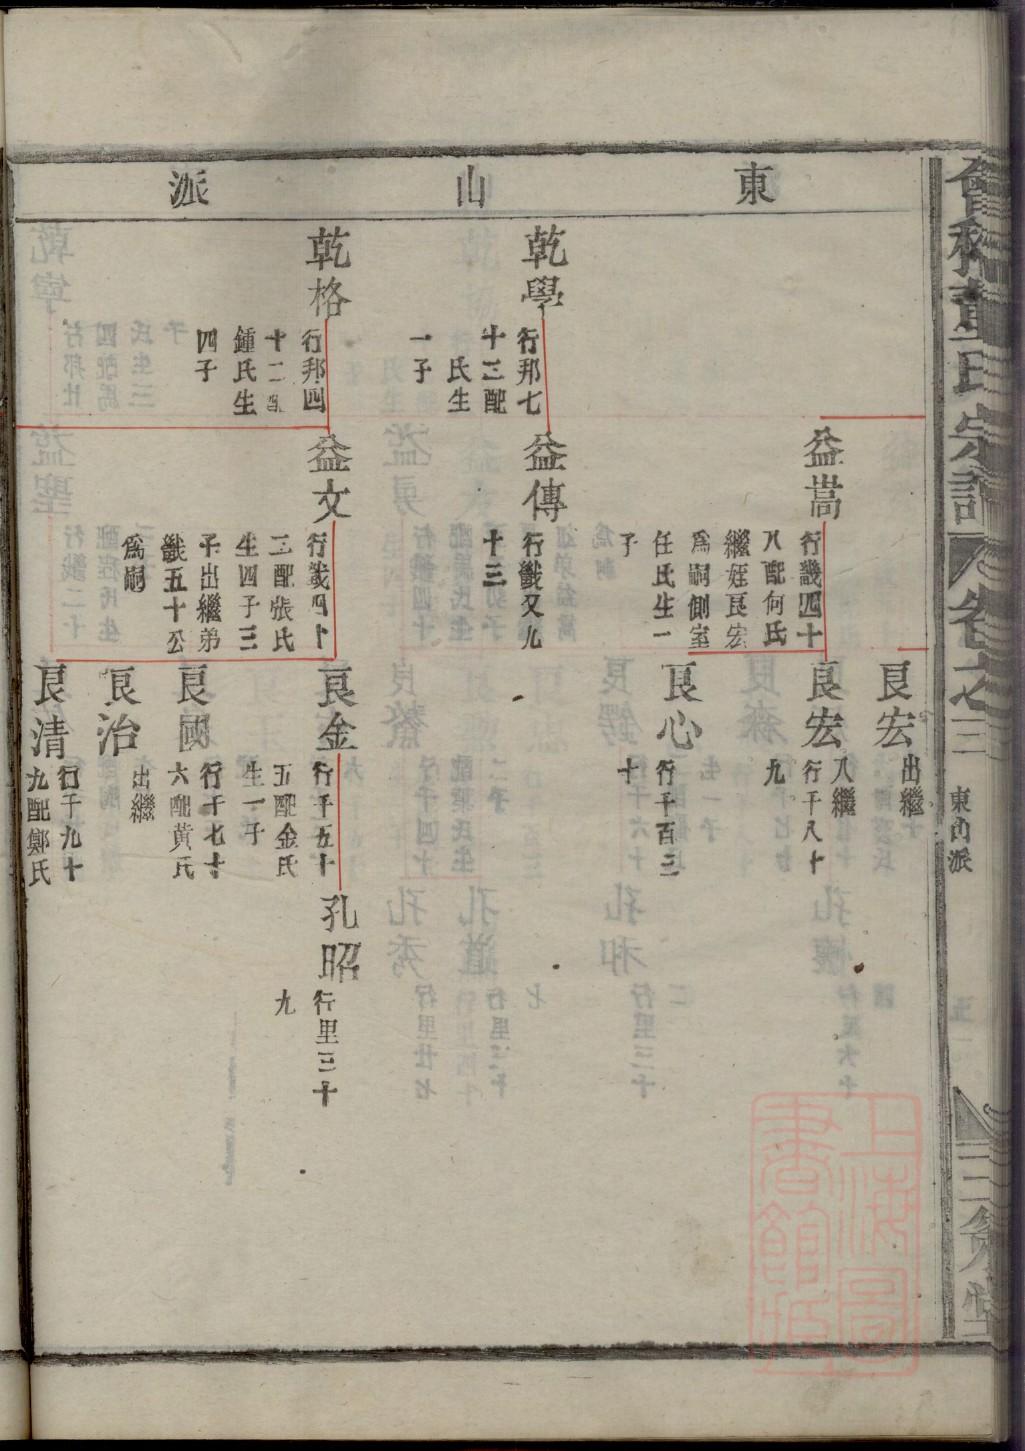 東山派
乾學
行邦七
十三配
氏生
一子
乾格
行邦四
十二配
鍾氏生
四子
益嵩
行畿四十
八配何氏
繼姪良宏
爲嗣側室
任氏生一
子
益傳
行畿又九
十三
益文
行畿四十
二配張氏
生四子三
子出繼弟
畿五十公
爲嗣
良宏
出繼
良宏
入繼
行千八十
九
良心
行千百三
十
良金
行千五十
五配金氏
生一子
良國
行千七十
六配黃氏
良治
出繼
良清
行千九十
九配鄭氏
孔昭
行里三十
九
董氏宗譜
卷之三
東山派
上海圖書館藏